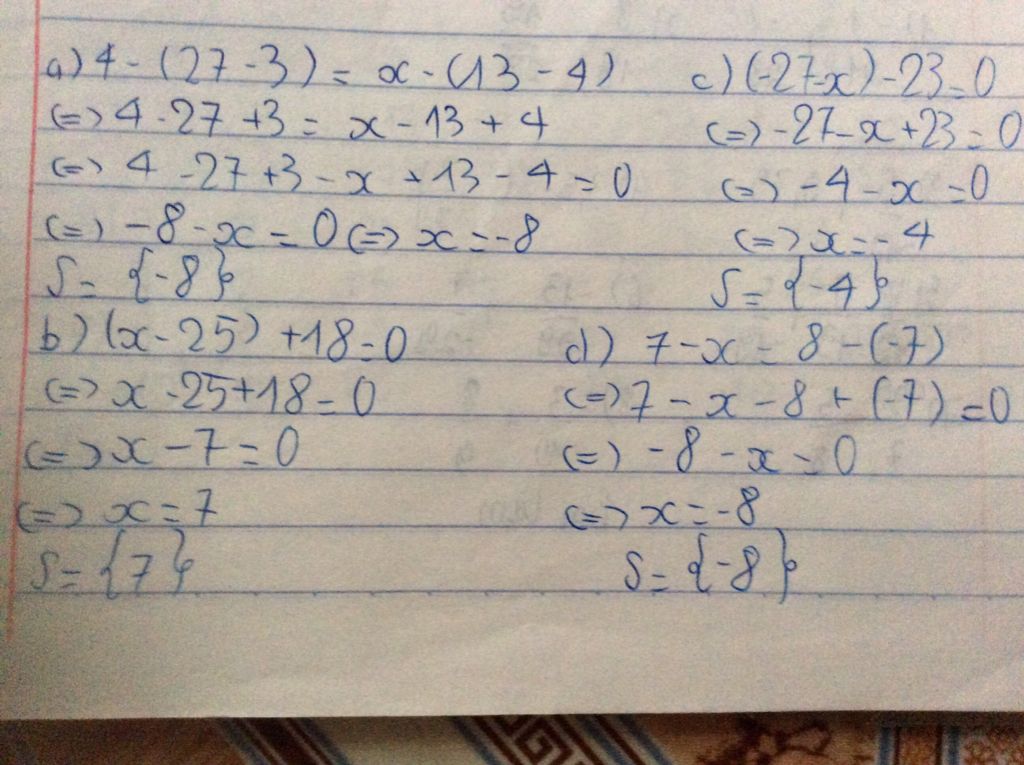 a) 4 - (27 - 3) = x - (13 - 4)
(=) 4 - 27 + 3 = x - 13 + 4
(=) 4 - 27 + 3 - x + 13 - 4 = 0
(=) -8 - x = 0 (=) x = -8
S = {-8}
b) (x - 25) + 18 = 0
(=) x - 25 + 18 = 0
(=) x - 7 = 0
(=) x = 7
S = {7}
c) (-27 - x) - 23 = 0
(=) -27 - x + 23 = 0
(=) -4 - x = 0
(=) x = -4
S = {-4}
d) 7 - x = 8 - (-7)
(=) 7 - x - 8 + (-7) = 0
(=) -8 - x = 0
(=) x = -8
S = {-8}